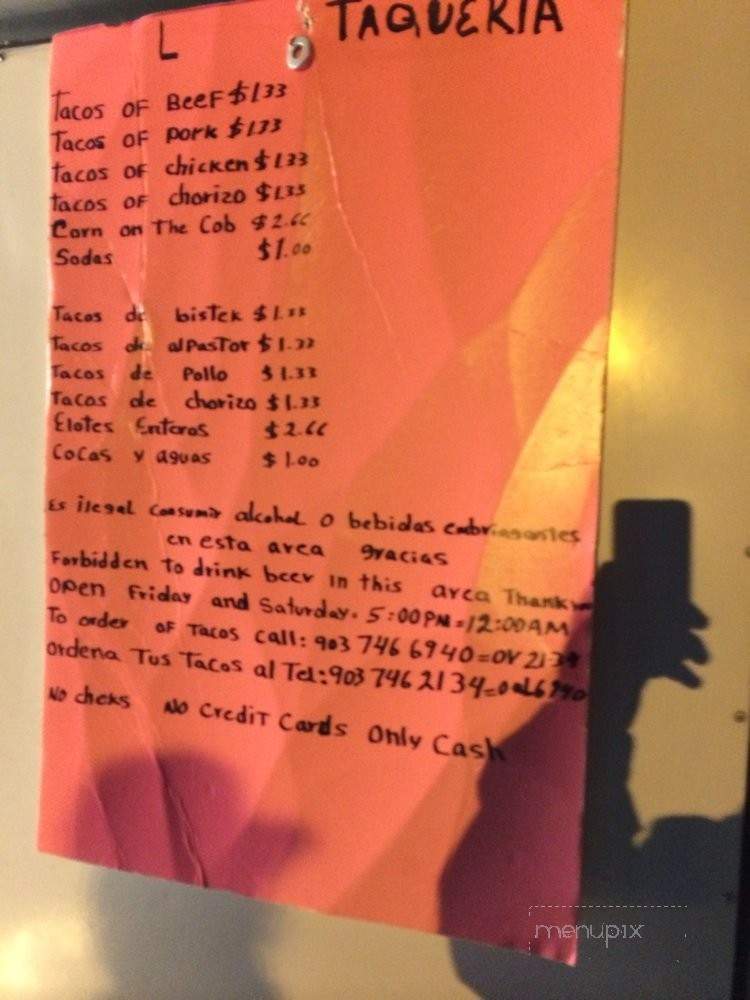 L TAQUERIA
Tacos OF BeeF $1.33
Tacos OF pork $1.33
tacos OF chicken $1.33
tacos OF chorizo $1.33
Corn on The Cob $2.66
Sodas $1.00
Tacos de bistek $1.33
Tacos de alPasTor $1.33
Tacos de Pollo $1.33
Tacos de chorizo $1.33
Elotes Enteros $2.66
Cocas y aguas $1.00
Es ilegal consumir alcohol o bebidas embriagantes
en esta area gracias
Forbidden to drink beer in this area Thank
Open Friday and Saturday. 5:00PM=12:00AM
To order of Tacos call: 903 746 6940=OR 2134
Ordena Tus Tacos al Tel:903 746 2134=o al 6940
No cheks No Credit Cards Only Cash
menupix